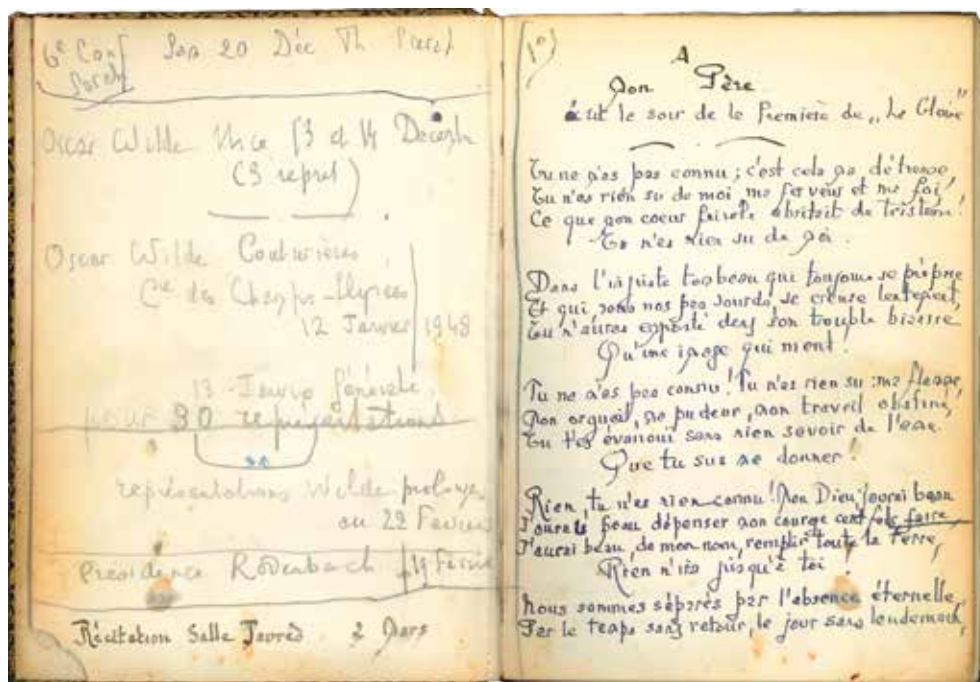 6e Conf Sam 20 Déc Th
Oscar Wilde Nice 13 et 14 Décemb
(3 repret)
Oscar Wilde Couturières
Cie des Champs-Elysées
12 Janvier 1948
13 Janvier Générale
pour 30 représentations
représentations Wilde prolongées
au 22 Février
Présidence Rodenbach 14 Février
Récitation Salle Javrès 2 Mars
1°)
A
Mon Père
écrit le soir de la Première de „ La Gloire"
Tu ne m'as pas connu ; c'est cela ma détresse,
Tu n'as rien su de moi, ma ferveur et ma foi,
Ce que mon coeur abritait de tristesse!
Tu n'as rien su de moi.
Dans l'injuste tombeau qui toujours se
Et qui, sous nos pas sourds, se creuse lentement,
Tu n'auras emporté dans ton trouble bizarre
Qu'une image qui ment!
Tu ne m'as pas connu! Tu n'as rien su : ma flamme,
Mon orgueil, ma pudeur, mon travail obstiné,
Tu t'es évanoui sans rien savoir de l'eau
Que tu sus me donner!
Rien, tu n'as rien connu! Mon Dieu j'aurai beau
J'aurais beau dépenser mon courage cent fois
J'aurai beau, de mon nom, remplir toute la Terre,
Rien n'ira jusqu'à toi!
Nous sommes séparés par l'absence éternelle,
Par le temps sans retour, le jour sans lendemain,